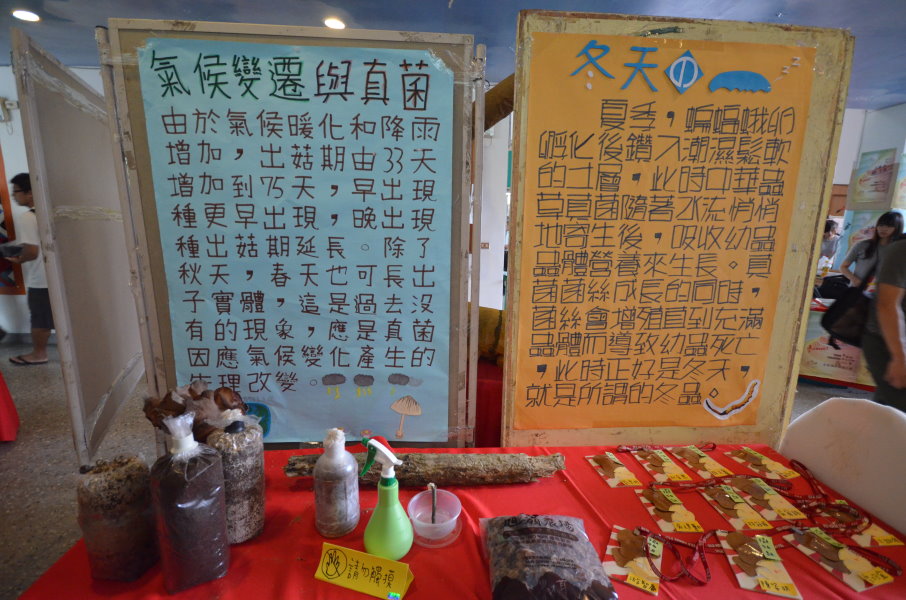 氣候變遷與真菌
由於氣候暖化和降雨
增加，出菇期由33天
增加到75天，早出現
種更早出現，晚出現
種出菇期延長。除了
秋天，春天也可長出
子實體，這是過去沒
有的現象，應是真菌
因應氣候變化產生的
生理改變。
冬天中
夏季，蝙蝠蛾卵
孵化後鑽入潮濕鬆軟
的土層，此時中華蟲
草真菌隨著水流悄悄
地寄生後，吸收幼蟲
蟲體營養來生長。真
菌菌絲成長的同時，
菌絲會增殖直到充滿
蟲體而導致幼蟲死亡
，此時正好是冬天，
就是所謂的冬蟲。
請勿觸摸